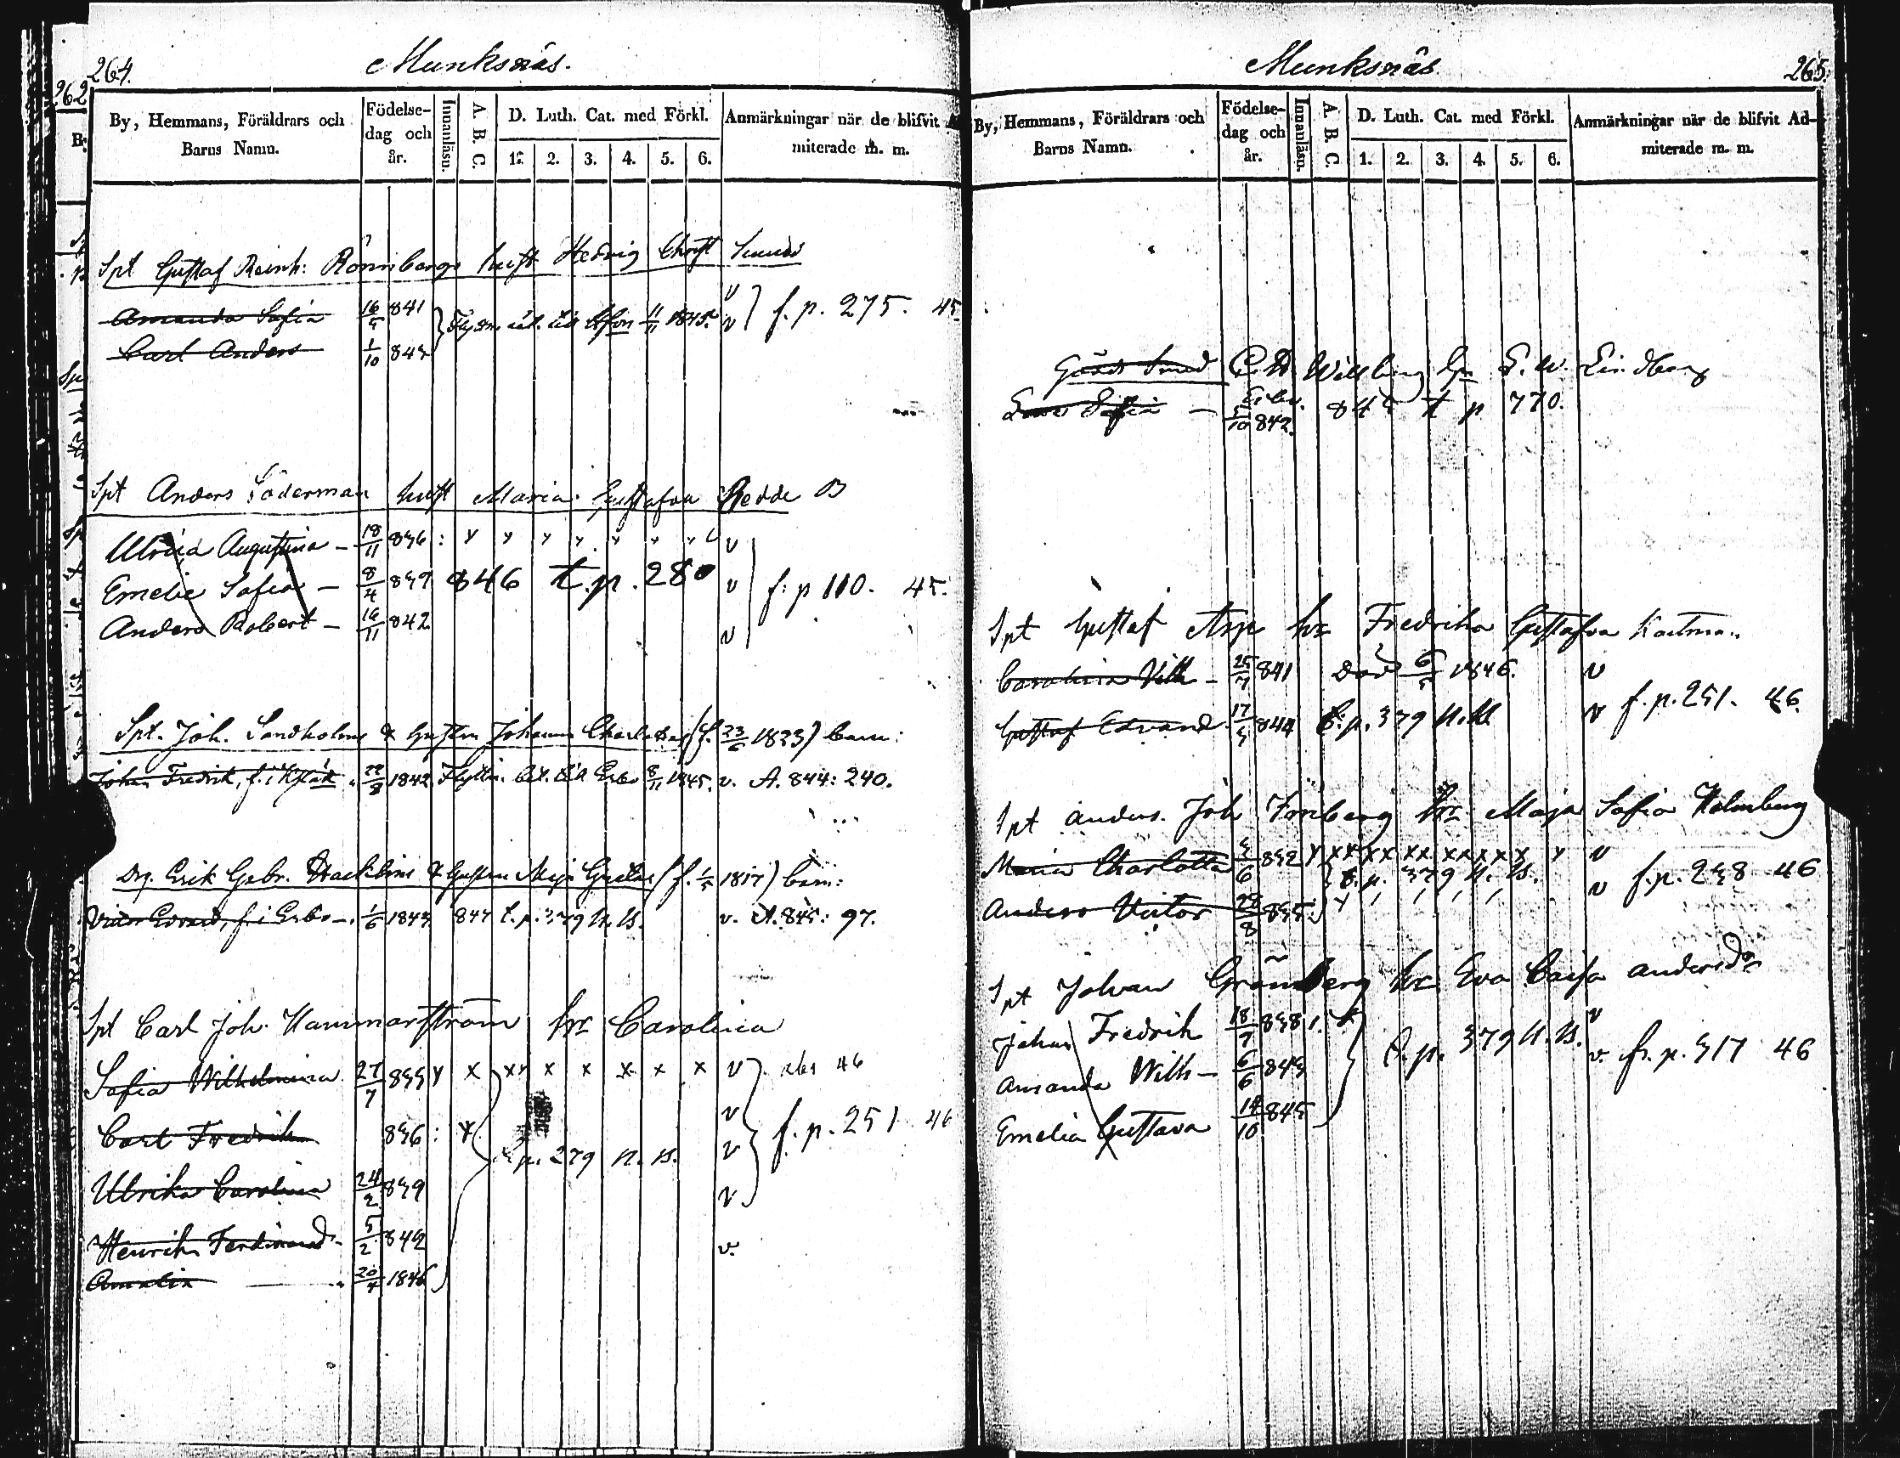 264.
Munksnäs.
By, Hemmans, Föräldrars och Barns Namn.
Födelse-dag och år.
Innanläsn.
A. B. C.
D. Luth. Cat. med Förkl.
1. 2. 3. 4. 5. 6.
Anmärkningar när de blifvit
miterade m. m.
Spt Gustaf Reinh: Rönnbergs hust Hedvig Christ
Amanda Sofia 16/5 841 v
Carl Anders 1/10 843 v f. p. 275. 45
Spt Anders Söderman hust Maria Gustafva Redde
Ulrica Augustina - 18/11 836 v
Emelie Sofia - 8/4 839 846 t. p. 280 v f: p 110. 45.
Anders Robert - 16/11 842 v
Spt. Joh. Sandholm & hustru Johanna Charlotta (f. 23/6 1823) barn:
Johan Fredrik, f. i 1842 Flyttn. bet. till Esbo 8/11 1845. v. A. 844: 240.
Erik Gabr. & hustru Maja Gustava (f. 1817) barn:
Victor Edvard, f. i Esbo - 1/6 1843 847 t. p. 379 N. B. v. A. 845: 97.
Spt Carl Joh. Hammarström hr Carolina
Sofia Wilhelmina 27/7 835 x x x x x x x v
Carl Fredrik 836 : v
p. 279 N. B. v f. p. 251 46
Ulrika Carolina 24/2 839 v
Henrik Ferdinand - 5/2 842 v.
Amalia 20/4 1846
Munksnäs
265.
By, Hemmans, Föräldrars och Barns Namn.
Födelse-dag och år.
Innanläsn.
A. B. C.
D. Luth. Cat. med Förkl.
1. 2. 3. 4. 5. 6.
Anmärkningar när de blifvit Ad-
miterade m. m.
Gårds Smed Lindberg
Sofia - 5/10 842. t p 770.
Spt Gustaf Asp hr Fredrika Gustafva
Carolina Vilh - 25/7 841 död 6/5 1846. v
Gustaf Edvard. 17/5 844 t. p. 379 N. B. v f. p. 251. 46.
Spt Anders Joh hr Maja Sofia Holmberg
Maria Charlotta 832 v
t. p. 379 N. B. v f. p. 238 46
Anders Victor 28/8 835
Spt Johan Grönberg hr Eva Caisa Andersdr
Johan Fredrik 18/9 838 v
t. p. 379 N. B. v. fr. p. 317 46
Amanda Wilh - 6/6 843
Emelia Gustava 14/10 845